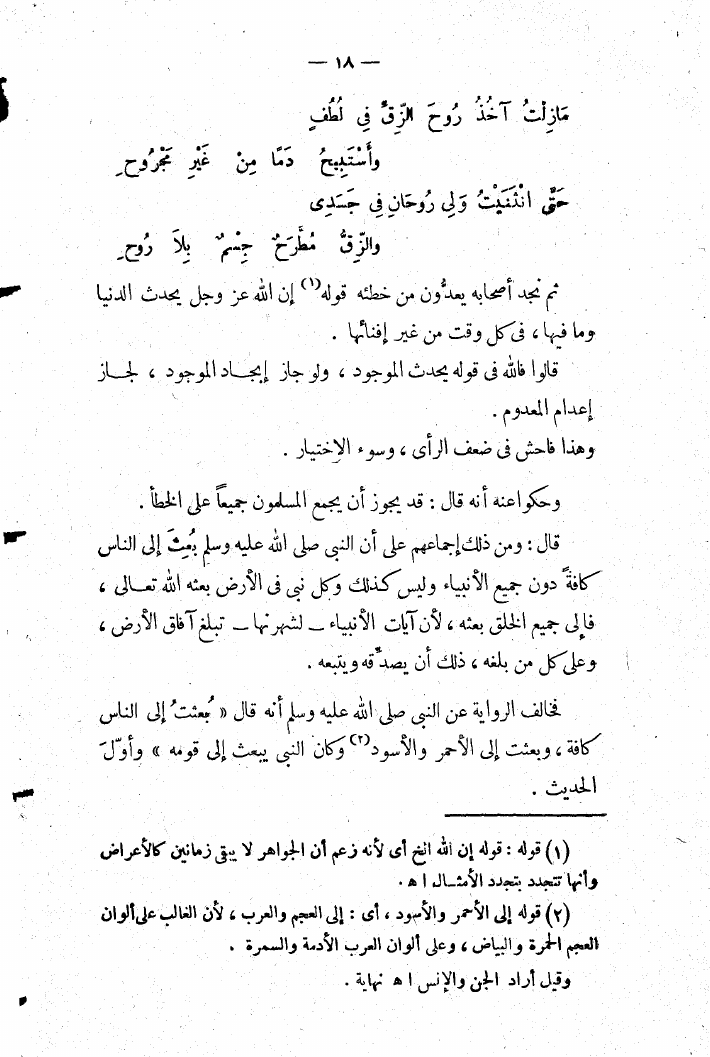 — ١٨ —
مَازِلْتُ آخُذُ رُوحَ الزِّقِّ فِي لُطُفٍ
وأَسْتَبِيحُ دَمًا مِنْ غَيْرِ مَجْرُوحِ
حَتَّى انْثَنَيْتُ وَلِي رُوحَانِ فِي جَسَدِى
والزِّقُّ مُطَّرَحٌ جِسْمٌ بِلاَ رُوحِ
ثم نجد أصحابه يعدُّون من خطئه قوله(١) إن الله عز وجل يحدث الدنيا
وما فيها، فى كل وقت من غير إفنائها .
قالوا فالله فى قوله يحدث الموجود ، ولو جاز إيجـاد الموجود ، لجـاز
إعدام المعدوم .
وهذا فاحش فى ضعف الرأى ، وسوء الإختيار .
وحكوا عنه أنه قال : قد يجوز أن يجمع المسلمون جميعاً على الخطأ .
قال : ومن ذلك إجماعهم على أن النبى صلى الله عليه وسلم بُعِثَ إلى الناس
كافةً دون جميع الأنبياء وليس كذلك وكل نبى فى الأرض بعثه الله تعـالى ،
فإلى جميع الخلق بعثه ، لأن آيات الأنبياء ــ لشهرتها ــ تبلغ آفاق الأرض ،
وعلى كل من بلغه ، ذلك أن يصدّقه ويتبعه .
فخالف الرواية عن النبى صلى الله عليه وسلم أنه قال « بُعثتُ إلى الناس
كافة ، وبعثت إلى الأحمر والأسود(٢) وكان النبى يبعث إلى قومه » وأوّلَ
الحديث .
(١) قوله : قوله إن الله الخ أى لأنه زعم أن الجواهر لا يبقى زمانين كالأعراض
وأنها تتجدد بتجدد الأمثـال ا ه .
(٢) قوله إلى الأحمر والأسود ، أى : إلى العجم والعرب ، لأن الغالب على ألوان
العجم الحمرة والبياض ، وعلى ألوان العرب الأدمة والسمرة .
وقيل أراد الجن والإنس ا ه نهاية .